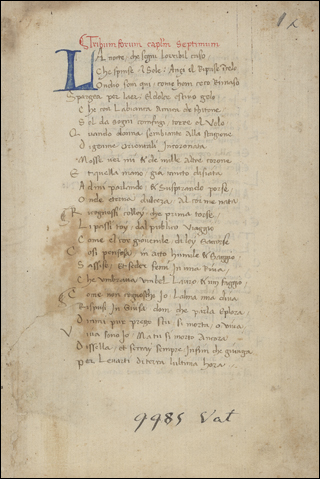 Triumforum capłm Septimum
LA notte che segui lorribil caso
Che spense il Sole Anzi il Ripose i Celo
Ondio son qui come hom ceco Rimaso
Spargea per laer el dolce estivo gelo
Che con labianca Amica de thitone
Sol da sogni confusi torre el Velo
Quando donna sembiante alla stagione
Di gemme Orientali Incoronata
Mosse ver mi & de mille altre corone
Et quella mano gia molto disiata
Ad mi parlando & Suspirando porse
Onde eterna dulceza Al cor me nata
Ricognossi colley che prima torse
Li passi toy dal publico Viaggio
Come el cor giovenile di ley Sacorse
Cosi pensosa in atto humile & Saggio
Sassise et Seder femi In una Riva
Che umbrava umbel Lauro & um faggio
Come non cognosscho Io Lalma mia diva
Rispusi In Guisa dom che parla & plora
Dimmi pur prego Sei tu morta o viva
Viva sono Io Ma tu si morto Ancora
Dissella et Seray Sempre Infin che giunga
Per Levarti di terra lultima hora
9985 Vat